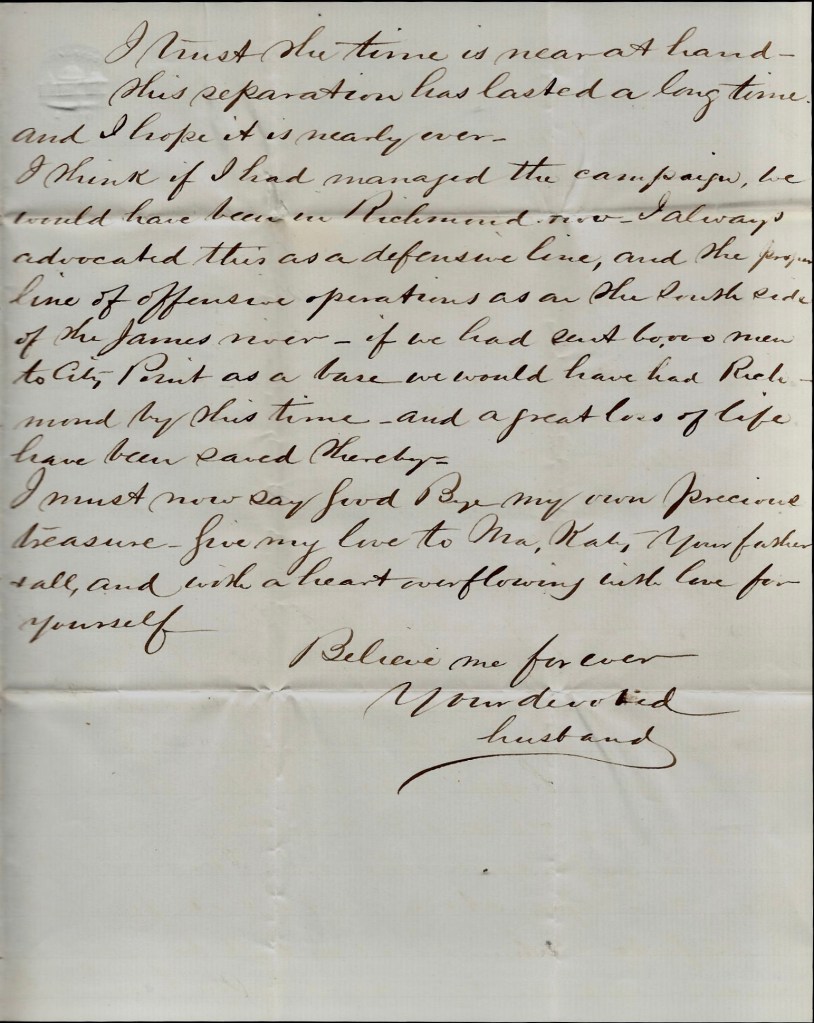 I trust the time is near at hand -
this separation has lasted a long time.
and I hope it is nearly over -
I think if I had managed the campaign, we
would have been in Richmond now - I always
advocated this as a defensive line, and the proper
line of offensive operations as on the South side
of the James river - if we had sent 60,000 men
to City Point as a base we would have had Rich -
mond by this time - and a great loss of life
have been saved thereby -
I must now say Good Bye my own precious
treasure - Give my love to Ma, Kate, Your father
+ all, and with a heart overflowing with love for
yourself
Believe me forever
Your devoted
husband